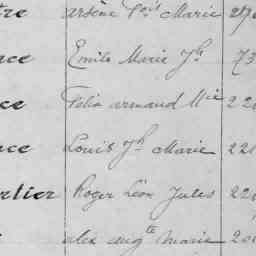 tre arsène Fois Marie
nce Emile Marie Jh 73
ce Félix armand Mie 22
nce Louis Jh Marie 220
rtier Roger Léon Jules 220
alex augte marie 200